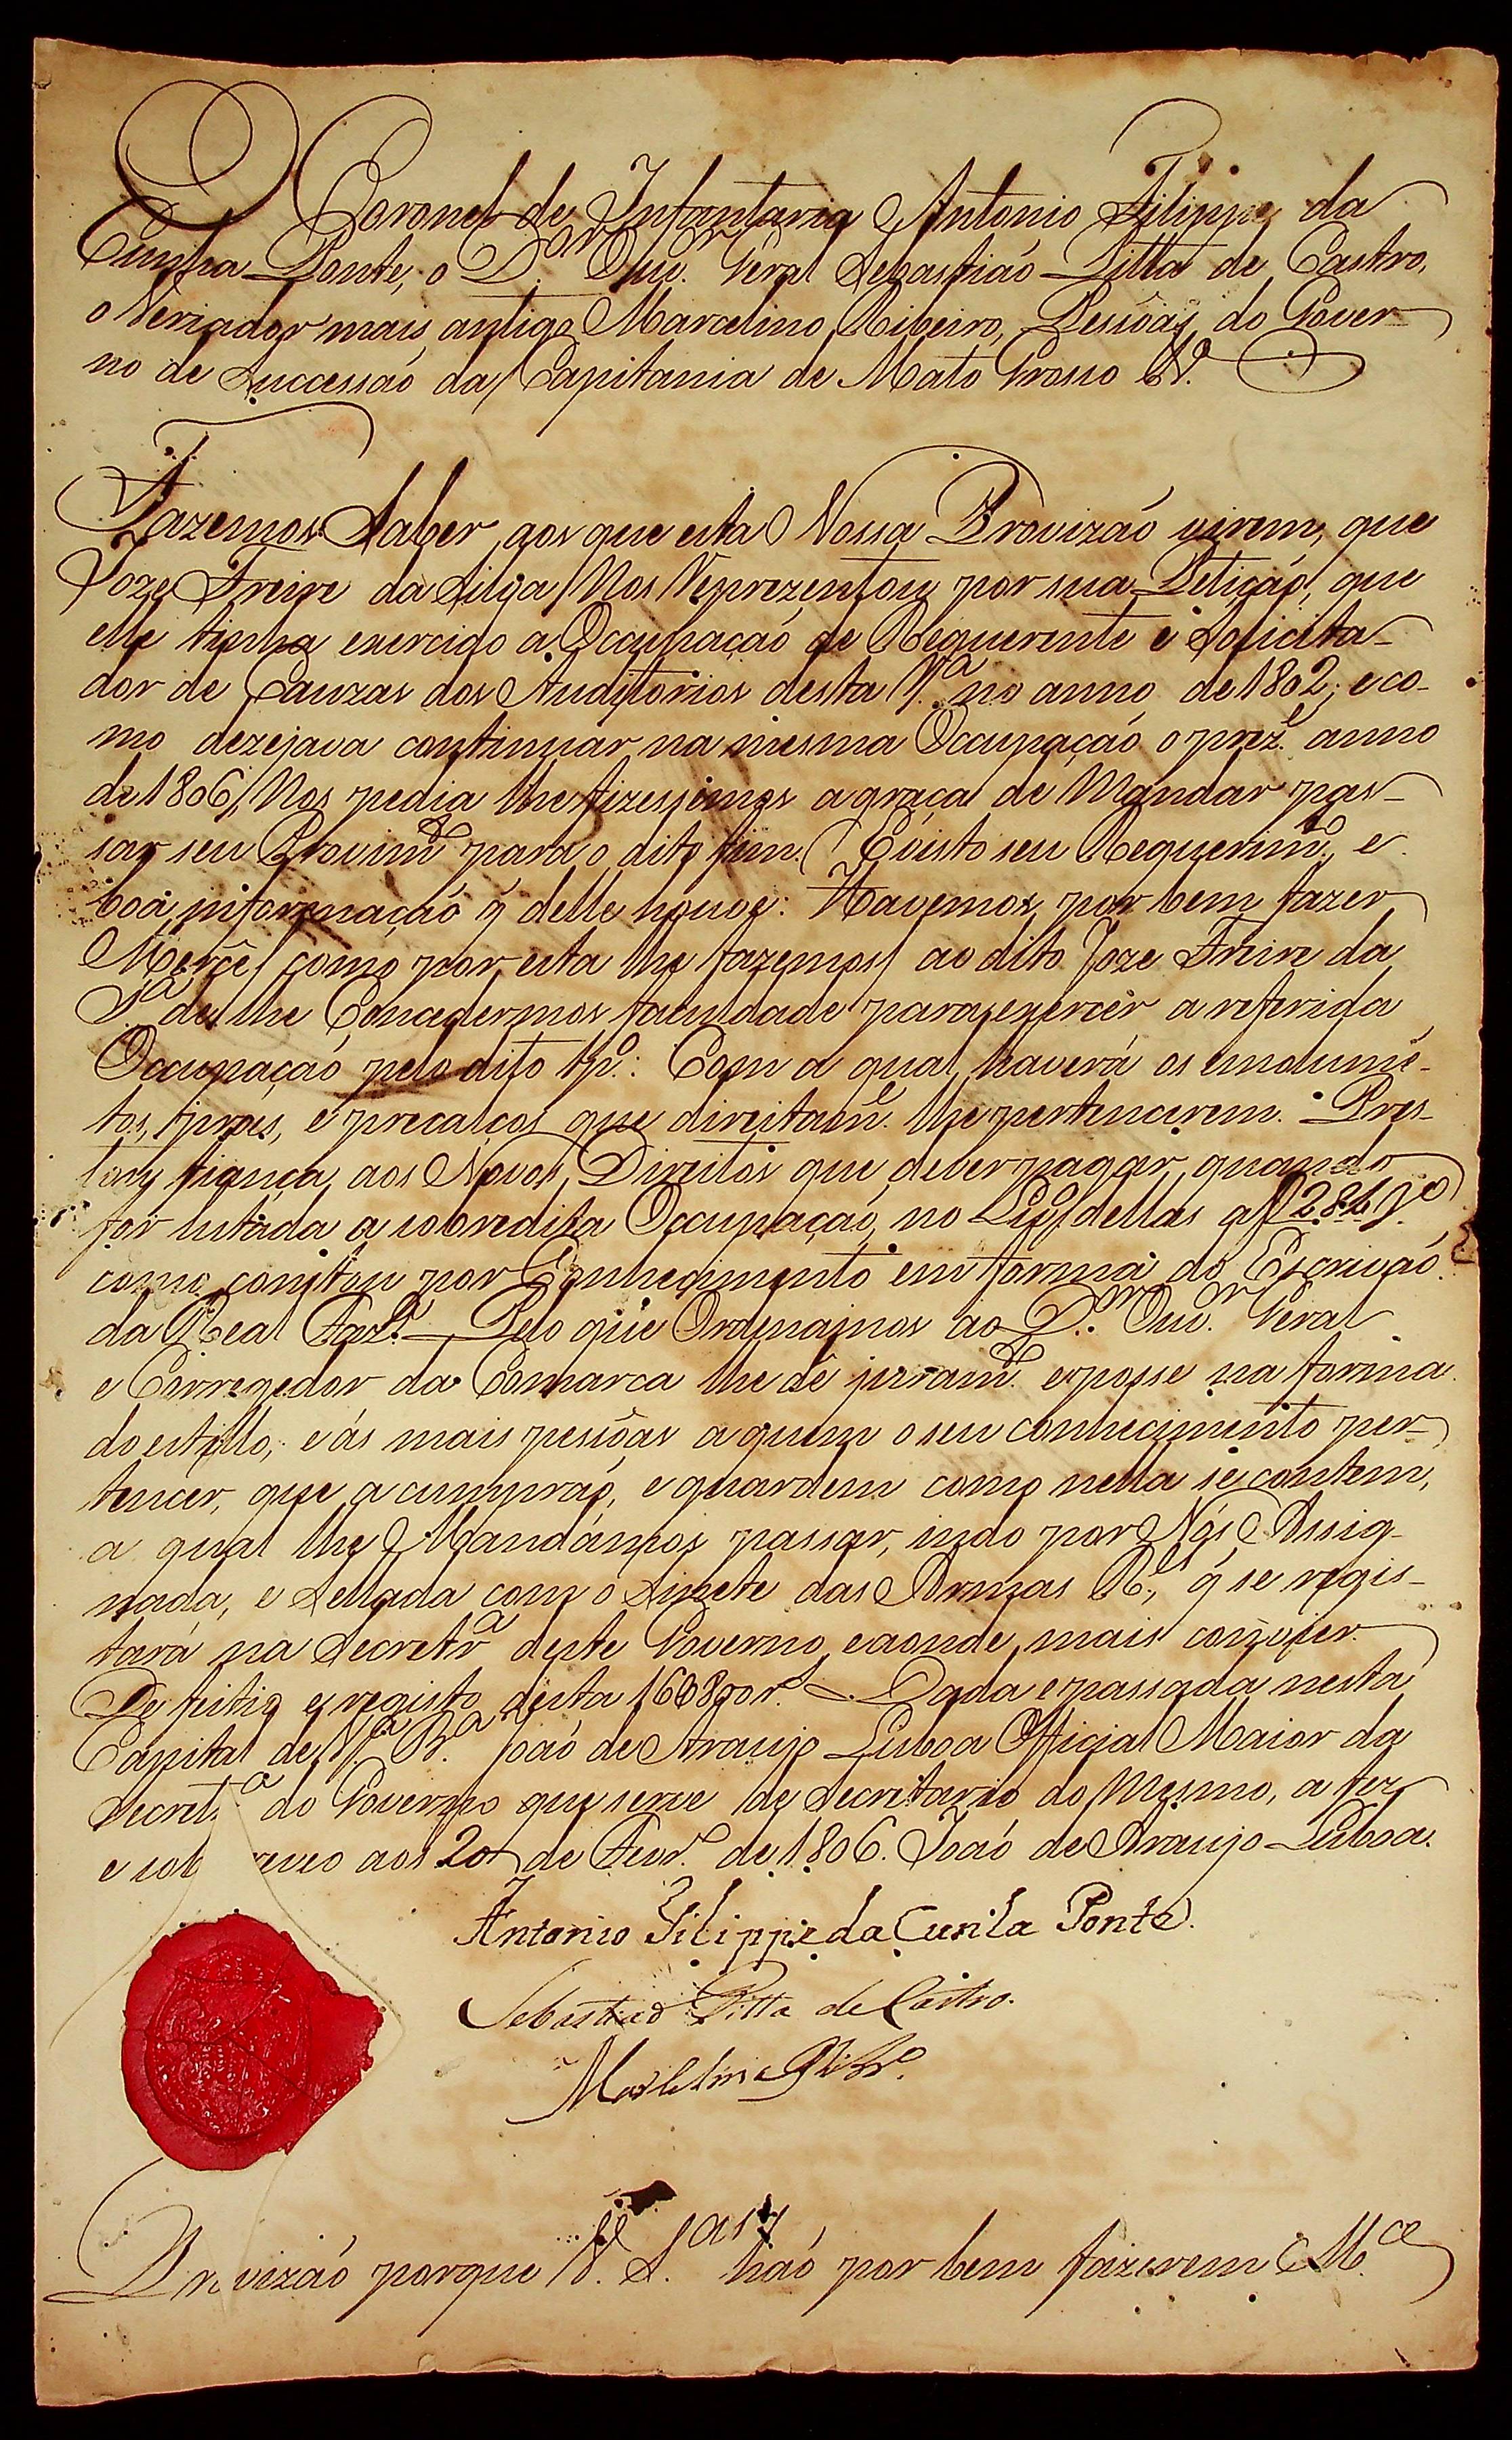 O Coronel de Infantaria Antonio Filippe da
Cunha Ponte, o D.or Ouv.or Geral Sebastiaó Pitta de Castro,
o Veriador mais antigo Marcelino Ribeiro, Pessôas do Gover-
no de Successaó da Capitania de Mato Grosso &.a
Fazemos Saber aos que esta Nossa Provizaó virem, que
Joze Freire da Silva Nos Reprezentou por sua Petiçaó, que
elle tinha exercido a Occupaçaó de Requerente e Solicita-
dor de Cauzas dos Auditorios desta V.a no anno de 1802; e co-
mo dezejava continuar na mesma Occupaçaó o prez.e anno
de 1806, Nos pedia lhe fizessemos a graça de Mandar pas-
sar seu Provim.to para o dito fim. E visto seu Requerim.to, e
boa informaçaó q̃ delle houve: Havemos por bem fazer
Mercê (como por esta lhe fazemos) ao dito Joze Freire da
S.a de lhe Concedermos faculdade para exercêr a referida
Occupaçaó pelo dito tp.o: Com a qual haverá os emolumẽ-
tos, proes, e precalços que direitam.e lhe pertencerem.
fiança aos Novos Direitos que dever pagar, quando
for lutada a sobredita Occupaçaó, no L.o dellas a f 284 V.o
como constou por Conhecimento em forma do Escrivaó
da Real Faz.da Pelo que Ordenamos ao D.or Ouv.or Geral
e Corregedor da Comarca lhe dê juram.to e posse na forma
do estillo; e ás mais pessôas a quem o seu conhecimento per-
tencer, que a cumpraó, e guardem como nella se contem,
a qual lhe Mandámos passar, indo por Nós Assig-
nada, e Sellada com o Sinete das Armas R.es, q̃ se regis-
tará na Secretr.a deste Governo, e aonde mais convier.
De feitio e registo desta r.s Dada e passada nesta
Capital de V.a B.a Joaó de Araujo Lisboa Official Maior da
Secret.a do Governo que serve de Secretario do Mesmo, a fez
e aos 20 de Fevr.o de 1806. Joaó de Araujo Lisboa.
Antonio Filippe da Cunha Ponte.
Sebastiaõ Pitta de Castro.
Marcelino Ribr.o
Provizaó porque V. S.as haó por bem fazerem M.ce